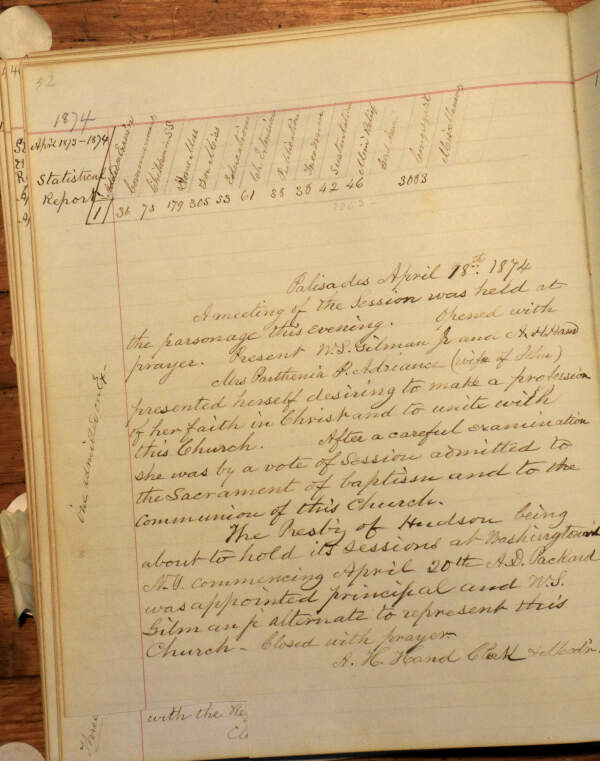 52
1874
April 1873-1874
Statistical
Report
Communicants
Children SS
Home Miss
For Miss
Education
Ch. Extension
Publication
Freedmen
Sustentation
Minis Relief
Congregat
Miscellaneous
1 36 73 179 305 53 61 38 38 42 46 3083
Palisades April 18th. 1874
A meeting of the Session was held at
the parsonage this evening. Opened with
prayer. Present W.S. Gilman Jr and A.H. Hand
Mrs Parthenia P. Adriance (wife of
presented herself desiring to make a profession
of her faith in Christ and to unite with
this Church. After a careful examination
she was by a vote of Session admitted to
the Sacrament of baptism and to the
communion of this Church.
One admitted on Ex-
The Presby of Hudson being
about to hold its sessions at Washingtonvil
N.Y. commencing April 20th A.D. Packard
was appointed principal and W.S.
Gilman jr alternate to represent this
Church - Closed with prayer-
A. H. Hand Clerk & Modr.
with the Re
Cl
Three